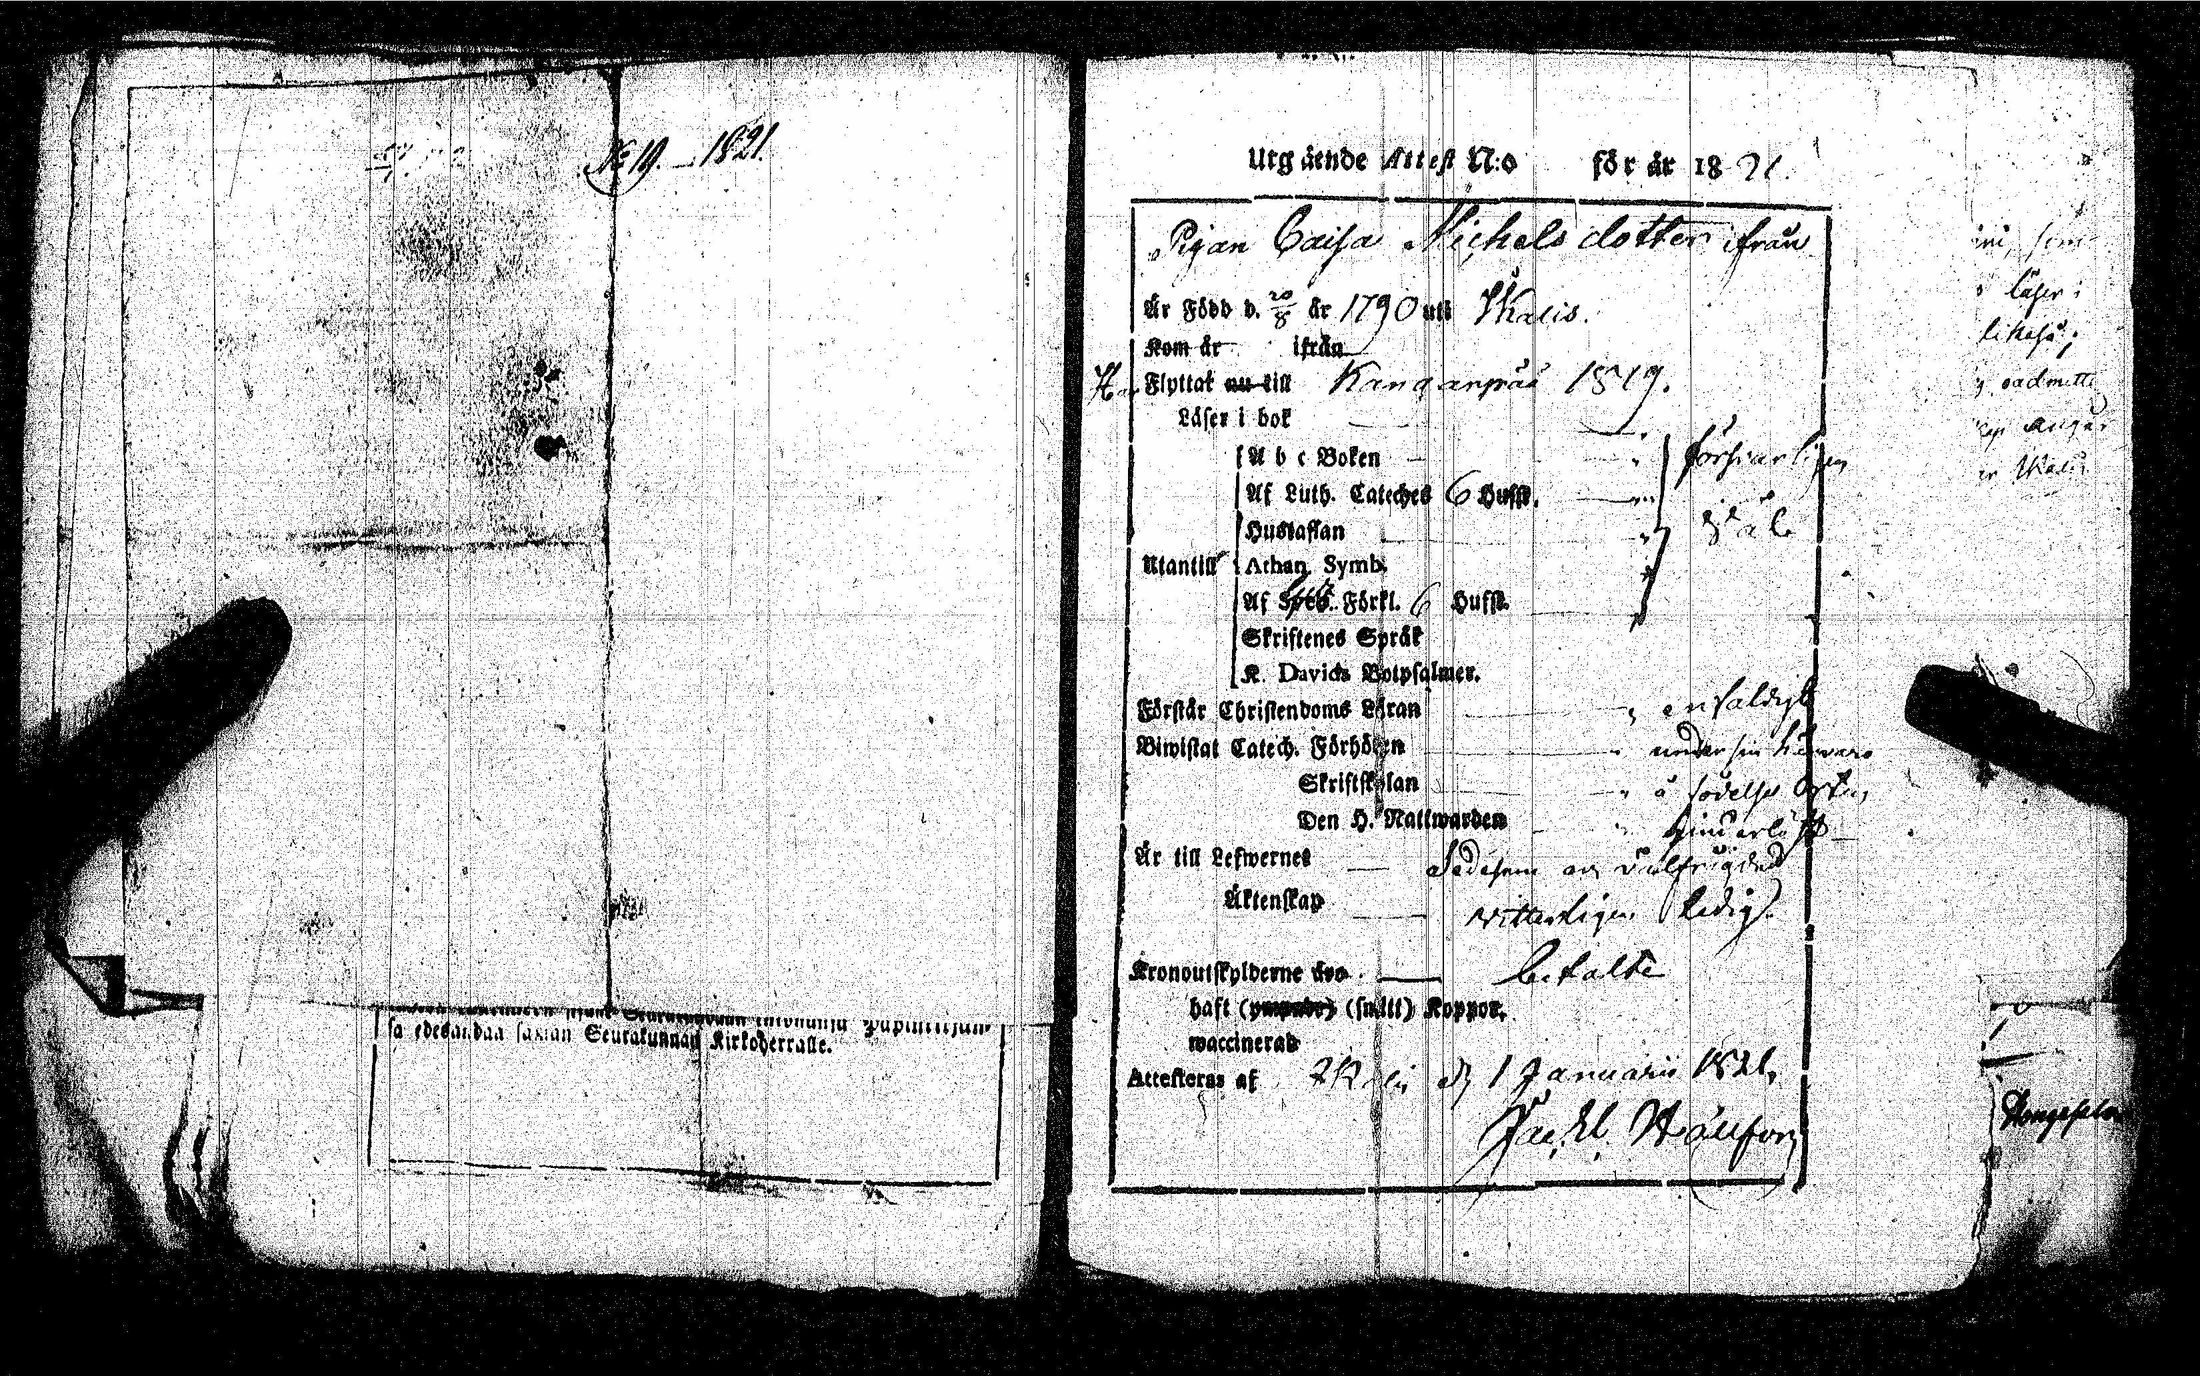 No 19. — 1821.
sa edesandaa saxian Seurakunnan Kirkoherralle.
Utgående Attest N:o för år 1821.
Pigan Caisa Michelsdotter ifrån
Är Född d. 20/8 år 1790 uti Ikalis.
Kom år ifrån
Har Flyttat nu till Kangarpää 1819.
Läser i bok
A b c Boken försvarligen
Af Luth. Cateches 6 Hufst.
Hustaflan
Utantill Athan. Symb.
Af Förkl. 6 Hufst.
Skriftenes Språk
K. Davids Botpsalmer.
Förstår Christendoms Läran enfaldigt
Biwistat Catech. Förhören under sin härvaro
Skriftskolan å födelse Orten
Den H. Nattwarden
Är till Lefwernes Sedesam och välfrägdad
Äktenskap witterligen ledig.
Kronoutskylderne äro betalte
haft (smitt) Koppor,
waccinerad
Attesteras af Ikalis d. 1 Januarii 1821,
läser i
likaså;
admitte
Ikalis